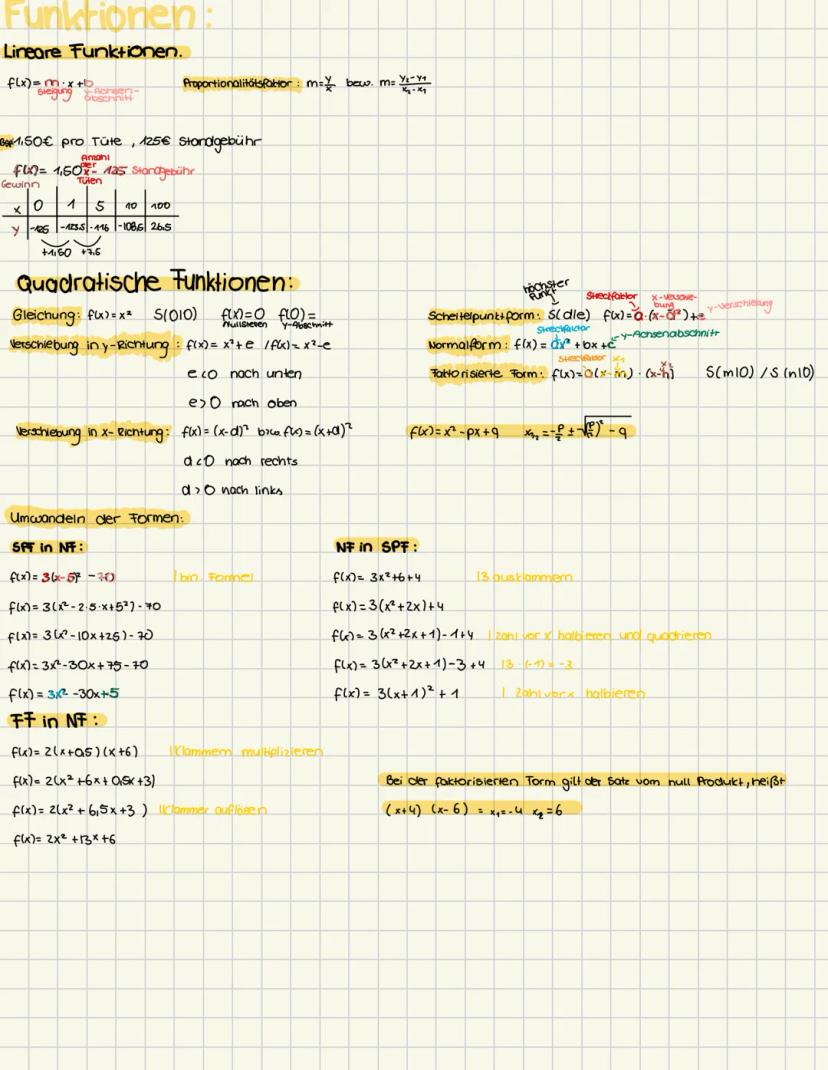 Funktionen:
Lineare Funktionen.
f(x)= m · x + b
Steigung y-Achsen-abschnitt
Proportionalitätsfaktor : m=y/x bzw. m= (y₂-y₁)/(x₂-x₁)
Bsp 1,50€ pro Tüte , 125€ Standgebühr
f(x)= 1,50x - 125 Standgebühr
Gewinn Anzahl der Tüten
x 0 1 5 10 100
y -125 -123,5 -116 -108,5 26,5
+1,50 +7,5
Quadratische Funktionen:
Gleichung: f(x)=x² S(0|0) f(x)=0 f(0)=
Nullstellen y-Abschnitt
Verschiebung in y-Richtung : f(x)= x²+e /f(x)= x²-e
e<0 nach unten
e>0 nach oben
Verschiebung in x-Richtung: f(x)=(x-d)² bzw. f(x)=(x+d)²
d<0 nach rechts
d>0 nach links
höchster Punkt Streckfaktor x-Verschiebung y-Verschiebung
Scheitelpunktform: S(d|e) f(x)=a·(x-d²)+e
Streckfaktor y-Achsenabschnitt
Normalform: f(x)= ax² + bx + c
Streckfaktor x₁ x₂
Faktorisierte Form: f(x)=a(x-m)·(x-n) S(m|0) / S(n|0)
f(x)=x²-px+q x₁,₂ =-p/2 ± √(p/2)² - q
Umwandeln der Formen:
SPF in NF:
f(x)= 3(x-5)² - 70 | bin. Formel
f(x)= 3(x²-2·5·x+5²)-70
f(x)= 3(x²-10x+25)-70
f(x)= 3x²-30x+75-70
f(x)= 3x²-30x+5
NF in SPF:
f(x)= 3x²+6+4 |3 ausklammern
f(x)=3(x²+2x)+4
f(x)= 3(x²+2x+1)-1+4 | Zahl vor x halbieren und quadrieren
f(x)= 3(x²+2x+1)-3+4 |3·(-1)=-3
f(x)= 3(x+1)²+1 | Zahl vor x halbieren
FF in NF:
f(x)= 2(x+0,5)(x+6) |Klammern multiplizieren
f(x)= 2(x²+6x+0,5x+3)
f(x)= 2(x²+6,5x+3) |Klammer auflösen
f(x)= 2x²+13x+6
Bei der faktorisierten Form gilt der Satz vom null Produkt, heißt
(x+4) (x-6) = x₁=-4 x₂=6